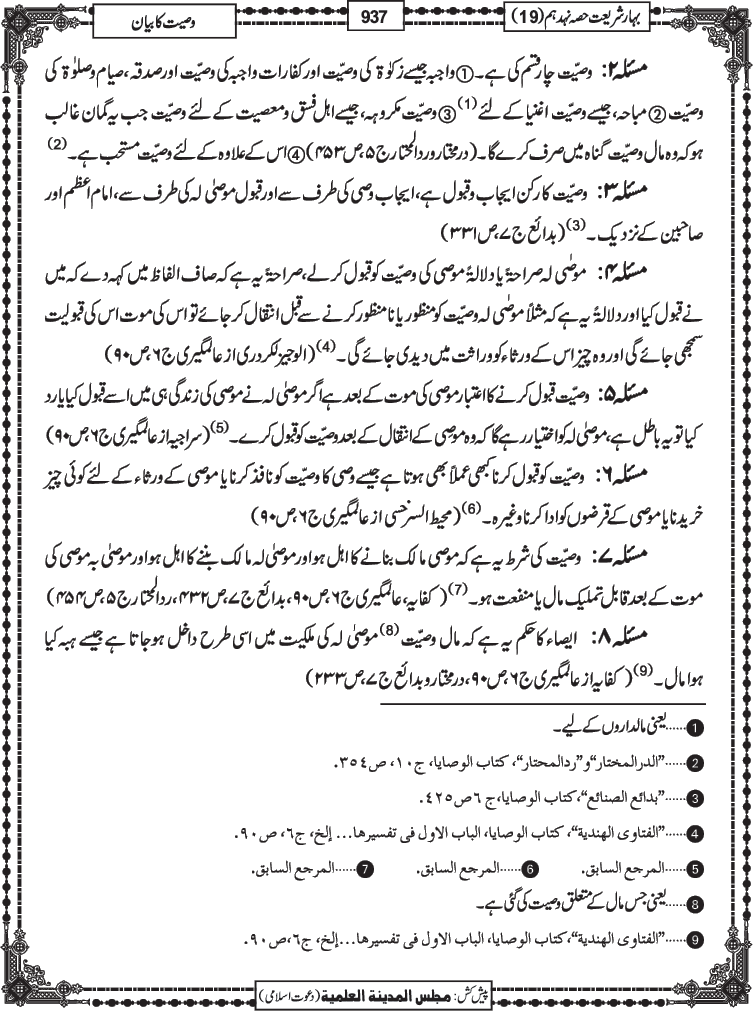 بہار شریعت حصہ نہدہم (19)
937
وصیت کا بیان
مسئلہ ۲: وصیّت چار قسم کی ہے۔ ① واجبہ جیسے زکوٰۃ کی وصیّت اور کفارات واجبہ کی وصیّت اور صدقہ، صیام و صلوٰۃ کی
وصیّت ② مباحہ، جیسے وصیّت اغنیا کے لئے (1) ③ وصیّت مکروہہ، جیسے اہل فسق و معصیت کے لئے وصیّت جب یہ گمان غالب
ہو کہ وہ مال وصیّت گناہ میں صرف کرے گا۔ (درمختار وردالمحتار ج ۵، ص ۴۵۳) ④ اس کے علاوہ کے لئے وصیّت مستحب ہے۔ (2)
مسئلہ ۳: وصیّت کا رکن ایجاب و قبول ہے، ایجاب وصی کی طرف سے اور قبول موصیٰ لہ کی طرف سے، امام اعظم اور
صاحبین کے نزدیک۔ (3) (بدائع ج ۷، ص ۳۳۱)
مسئلہ ۴: موصٰی لہ صراحۃً یا دلالۃً موصی کی وصیّت کو قبول کرلے، صراحۃً یہ ہے کہ صاف الفاظ میں کہہ دے کہ میں
نے قبول کیا اور دلالۃً یہ ہے کہ مثلاً موصٰی لہ وصیّت کو منظور یا نامنظور کرنے سے قبل انتقال کرجائے تو اس کی موت اس کی قبولیت
سمجھی جائے گی اور وہ چیز اس کے ورثاء کو وراثت میں دیدی جائے گی۔ (4) (الوجیز للکردری از عالمگیری ج ۶، ص ۹۰)
مسئلہ ۵: وصیّت قبول کرنے کا اعتبار موصی کی موت کے بعد ہے اگر موصیٰ لہ نے موصی کی زندگی ہی میں اسے قبول کیا یا رد
کیا تو یہ باطل ہے، موصیٰ لہ کو اختیار رہے گا کہ وہ موصِی کے انتقال کے بعد وصیّت کو قبول کرے۔ (5) (سراجیہ از عالمگیری ج ۶، ص ۹۰)
مسئلہ ۶: وصیّت کو قبول کرنا کبھی عملاً بھی ہوتا ہے جیسے وصی کا وصیّت کو نافذ کرنا یا موصی کے ورثاء کے لئے کوئی چیز
خریدنا یا موصی کے قرضوں کو ادا کرنا وغیرہ۔ (6) (محیط السرخسی از عالمگیری ج ۶، ص ۹۰)
مسئلہ ۷: وصیّت کی شرط یہ ہے کہ موصی مالک بنانے کا اہل ہو اور موصیٰ لہ مالک بننے کا اہل ہو اور موصیٰ بہ موصی کی
موت کے بعد قابل تملیک مال یا منفعت ہو۔ (7) (کفایہ، عالمگیری ج ۶، ص ۹۰، بدائع ج ۷، ص ۴۳۲، ردالمحتار ج ۵، ص ۴۵۴)
مسئلہ ۸: ایصاء کا حکم یہ ہے کہ مال وصیّت (8) موصیٰ لہ کی ملکیت میں اسی طرح داخل ہوجاتا ہے جیسے ہبہ کیا
ہوا مال۔ (9) (کفایہ از عالمگیری ج ۶، ص ۹۰، درمختار و بدائع ج ۷، ص ۲۳۳)
1 ......یعنی مالداروں کے لیے۔
2 ......”الدرالمختار“و”ردالمحتار“، کتاب الوصایا، ج۱۰، ص۳۵٤.
3 ......”بدائع الصنائع“،کتاب الوصایا،ج ٦ ص٤٢٥.
4 ......”الفتاوی الهندیة“، کتاب الوصایا، الباب الاول فی تفسیرها... إلخ، ج٦، ص۹۰.
5 ......المرجع السابق. 6 ......المرجع السابق. 7 ......المرجع السابق.
8 ......یعنی جس مال کے متعلق وصیت کی گئی ہے۔
9 ......”الفتاوی الهندیة“،کتاب الوصایا، الباب الاول فی تفسیرها...إلخ، ج٦،ص۹۰.
پیش کش: مجلس المدینة العلمیة (دعوت اسلامی)